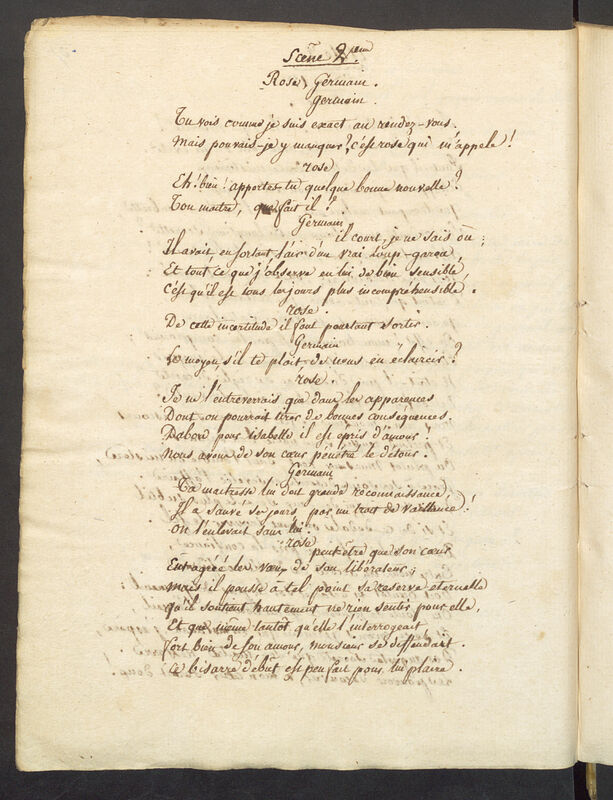 Scêne 2.eme
Rose, Germain.
germain.
Tu vois comme je suis exact au rendez-vous.
Mais pouvais-je y manquer? c'est rose qui m'appele!
rose
Eh! bien! apportes-tu quelque bonne nouvelle?
Ton maitre, que fait il?
Germain
il court, je ne sais où;
Il avait en sortant l'air d'un vrai loup-garou,
Et tout ce que j'observe en lui de bien sensible,
c'est qu'il est tous les jours plus incomprehensible.
rose.
De cette incertitude il faut pourtant sortir.
Germain
Le moyen, s'il te plait de nous en éclaircir?
rose.
Je ne l'entreverrais que dans les apparences
Dont on pourrait tirer de bonnes conséquences.
D'abord pour isabelle il est épris d'amour!
Nous avons de son cœur pénétré le détour.
Germain
Ta maitresse lui doit grande reconnaissance;
Il a sauvé ses jours par un trait de vaillance!
on l'enlevait sans lui.
rose
peut-être que son cœur
Eut agréé les vœux de son libérateur;
mais il pousse à tel point sa reserve eternelle
qu'il soutient hautement ne rien sentir pour elle,
Et que même tantôt qu'elle l'interrogeait
fort bien de son amour, monsieur se deffendait.
Ce bisarre début est peu fait pour lui plaire